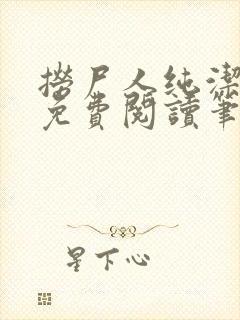 撈尸人純潔
免費閱讀筆
星下心